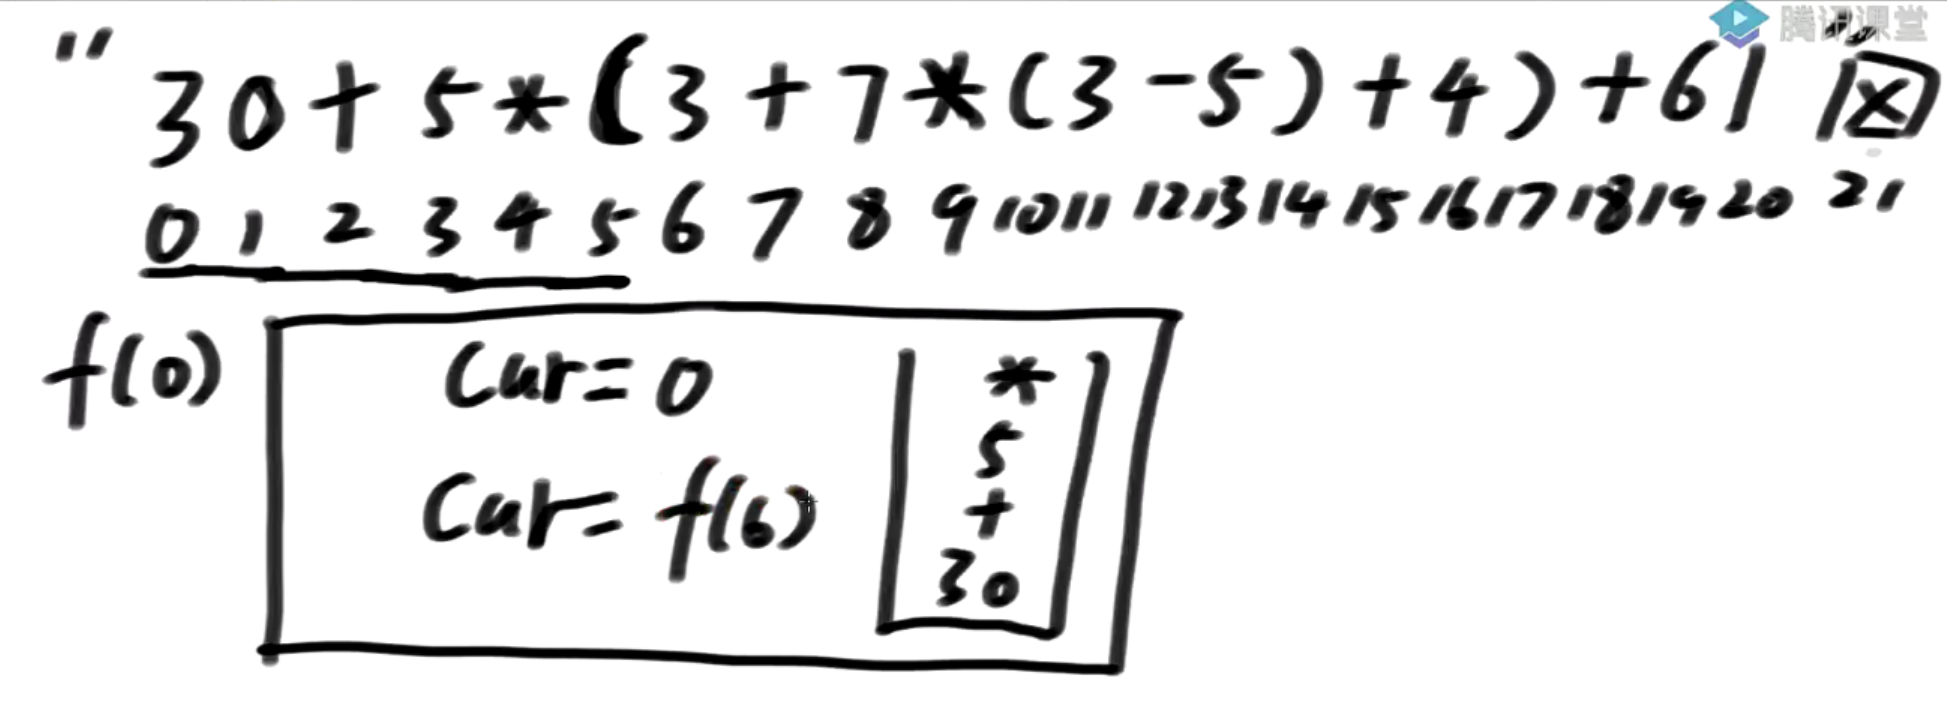 腾讯课堂
"30+5*(3+7*(3-5)+4)+61"
0 1 2 3 4 5 6 7 8 9 10 11 12 13 14 15 16 17 18 19 20 21
f(0)
Cur=0
Cur=f(6)
*
5
+
30